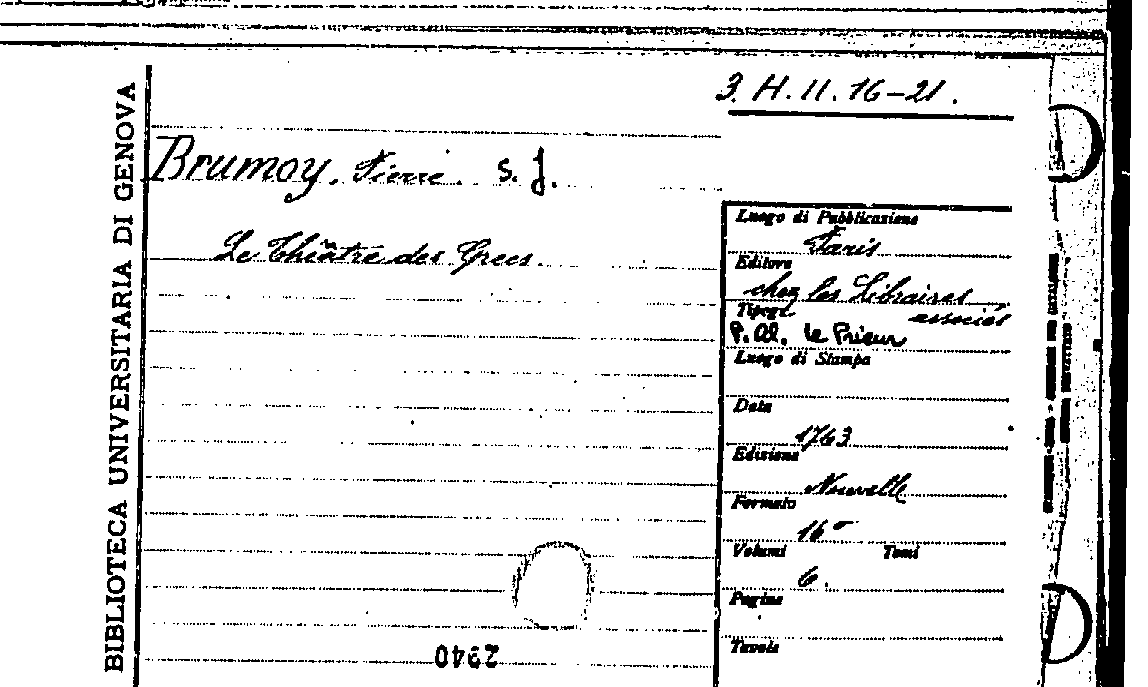 3. H. II. 16-21.
BIBLIOTECA UNIVERSITARIA DI GENOVA
Brumoy, Pierre. S. J.
Le Théâtre des Grecs.
Luogo di Pubblicazione
Paris
Editore
chez les Libraires
associés
Tipogr.
P. Al. le Prieur
Luogo di Stampa
Data
1763
Edizione
Nouvelle
Formato
16°
Volumi Tomi
6.
Pagine
Tavole